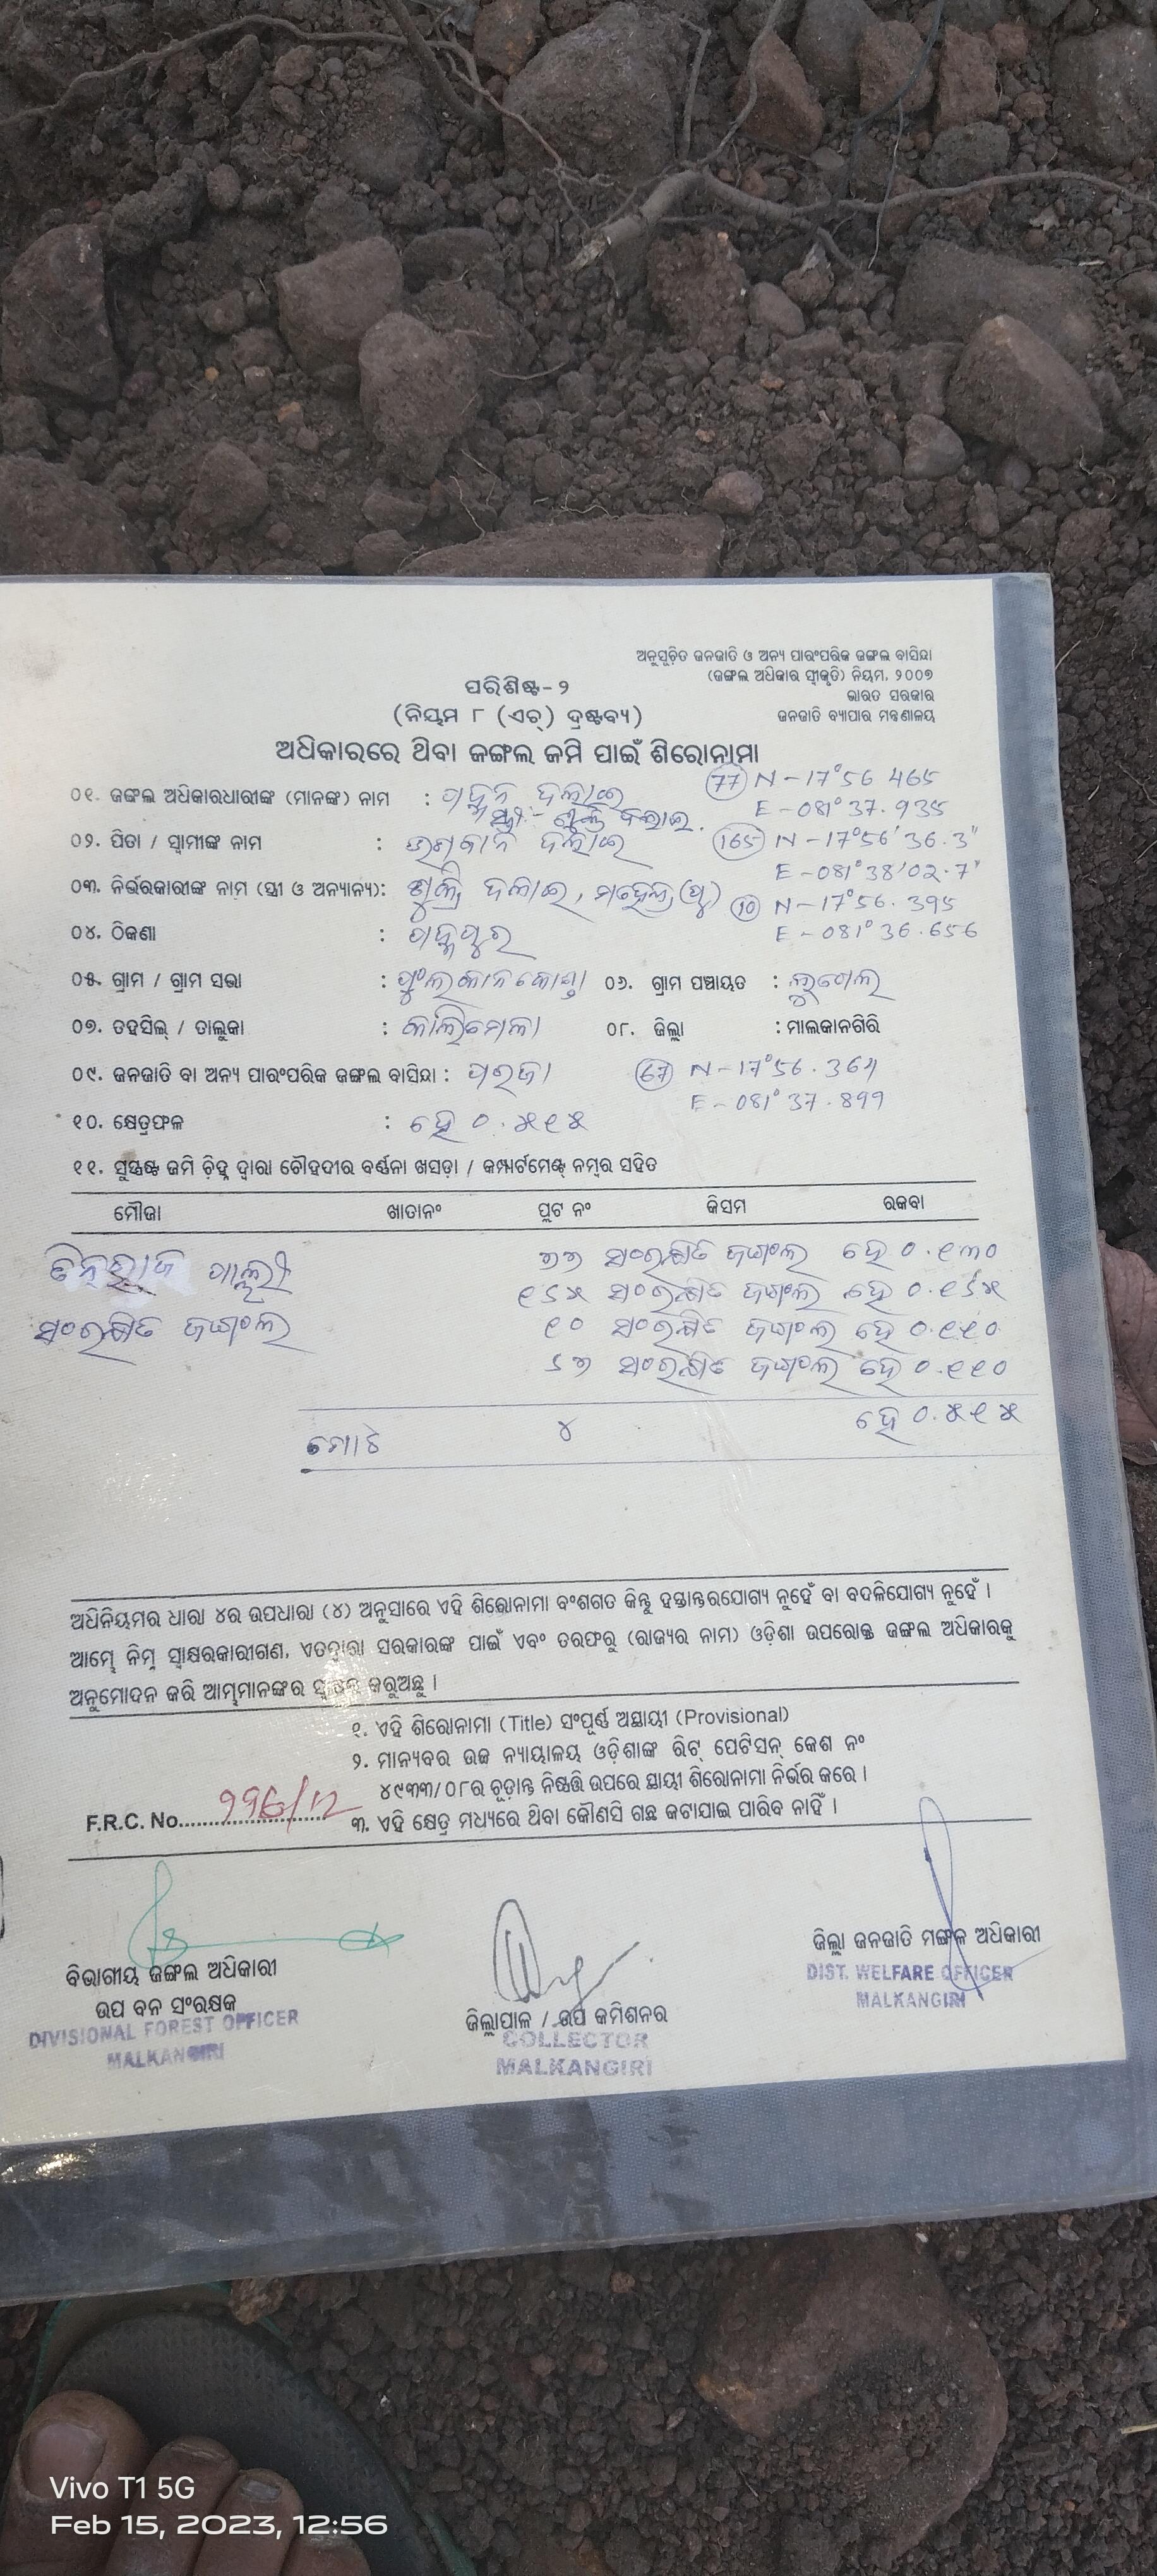 ଅନୁସୂଚିତ ଜନଜାତି ଓ ଅନ୍ୟ ପାରଂପରିକ ଜଙ୍ଗଲ ବାସିନ୍ଦା
(ଜଙ୍ଗଲ ଅଧିକାର ସ୍ୱୀକୃତି) ନିୟମ, ୨୦୦୭
ଭାରତ ସରକାର
ଜନଜାତି ବ୍ୟାପାର ମନ୍ତ୍ରଣାଳୟ
ପରିଶିଷ୍ଟ-୨
(ନିୟମ ୮ (ଏଚ୍) ଦ୍ରଷ୍ଟବ୍ୟ)
ଅଧିକାରରେ ଥିବା ଜଙ୍ଗଲ ଜମି ପାଇଁ ଶିରୋନାମା
(77) N - 17°56 465
E - 081° 37. 935
୦୧. ଜଙ୍ଗଲ ଅଧିକାରଧାରୀଙ୍କ (ମାନଙ୍କ) ନାମ :
(165) N - 17°56' 36.3"
E - 081° 38' 02.7"
୦୨. ପିତା / ସ୍ୱାମୀଙ୍କ ନାମ :
୦୩. ନିର୍ଭରକାରୀଙ୍କ ନାମ (ସ୍ତ୍ରୀ ଓ ଅନ୍ୟାନ୍ୟ):
(10) N - 17°56. 395
E - 081° 36.656
୦୪. ଠିକଣା :
୦୫. ଗ୍ରାମ / ଗ୍ରାମ ସଭା : ୦୬. ଗ୍ରାମ ପଞ୍ଚାୟତ :
୦୭. ତହସିଲ୍ / ତାଲୁକା : କାଲିମେଳା ୦୮. ଜିଲ୍ଲା : ମାଲକାନଗିରି
୦୯. ଜନଜାତି ବା ଅନ୍ୟ ପାରଂପରିକ ଜଙ୍ଗଲ ବାସିନ୍ଦା : ପରଜା (67) N - 17°56. 364
E - 081° 37. 899
୧୦. କ୍ଷେତ୍ରଫଳ : ହେ ୦.୫୧୫
୧୧. ସୁସ୍ପଷ୍ଟ ଜମି ଚିହ୍ନ ଦ୍ୱାରା ଚୌହଦୀର ବର୍ଣ୍ଣନା ଖସଡ଼ା / କମ୍ପାର୍ଟମେଣ୍ଟ୍ ନମ୍ବର ସହିତ
ମୌଜା ଖାତାନଂ ପ୍ଲଟ ନଂ କିସମ ରକବା
୭୭ ସଂରକ୍ଷିତ ଜଙ୍ଗଲ ହେ ୦.୧୩୦
୧୬୫ ସଂରକ୍ଷିତ ଜଙ୍ଗଲ ହେ ୦.୧୬୫
ସଂରକ୍ଷିତ ଜଙ୍ଗଲ ୧୦ ସଂରକ୍ଷିତ ଜଙ୍ଗଲ ହେ ୦.୧୧୦
୬୭ ସଂରକ୍ଷିତ ଜଙ୍ଗଲ ହେ ୦.୧୧୦
ମୋଟ ୪ ହେ ୦.୫୧୫
ଅଧିନିୟମର ଧାରା ୪ର ଉପଧାରା (୪) ଅନୁସାରେ ଏହି ଶିରୋନାମା ବଂଶଗତ କିନ୍ତୁ ହସ୍ତାନ୍ତରଯୋଗ୍ୟ ନୁହେଁ ବା ବଦଳିଯୋଗ୍ୟ ନୁହେଁ ।
ଆମ୍ଭେ ନିମ୍ନ ସ୍ୱାକ୍ଷରକାରୀଗଣ, ଏତଦ୍ୱାରା ସରକାରଙ୍କ ପାଇଁ ଏବଂ ତରଫରୁ (ରାଜ୍ୟର ନାମ) ଓଡ଼ିଶା ଉପରୋକ୍ତ ଜଙ୍ଗଲ ଅଧିକାରକୁ
ଅନୁମୋଦନ କରି ଆମ୍ଭମାନଙ୍କର ସ୍ୱାକ୍ଷର କରୁଅଛୁ ।
୧. ଏହି ଶିରୋନାମା (Title) ସଂପୂର୍ଣ୍ଣ ଅସ୍ଥାୟୀ (Provisional)
୨. ମାନ୍ୟବର ଉଚ୍ଚ ନ୍ୟାୟାଳୟ ଓଡ଼ିଶାଙ୍କ ରିଟ୍ ପେଟିସନ୍ କେଶ ନଂ
୪୯୩୩/୦୮ର ଚୂଡ଼ାନ୍ତ ନିଷ୍ପତ୍ତି ଉପରେ ସ୍ଥାୟୀ ଶିରୋନାମା ନିର୍ଭର କରେ ।
F.R.C. No. 996/12 ୩. ଏହି କ୍ଷେତ୍ର ମଧ୍ୟରେ ଥିବା କୌଣସି ଗଛ କଟାଯାଇ ପାରିବ ନାହିଁ ।
ବିଭାଗୀୟ ଜଙ୍ଗଲ ଅଧିକାରୀ
ଉପ ବନ ସଂରକ୍ଷକ
DIVISIONAL FOREST OFFICER
MALKANGIRI
ଜିଲ୍ଲାପାଳ / ଉପ କମିଶନର
COLLECTOR
MALKANGIRI
ଜିଲ୍ଲା ଜନଜାତି ମଙ୍ଗଳ ଅଧିକାରୀ
DIST. WELFARE OFFICER
MALKANGIRI
Vivo T1 5G
Feb 15, 2023, 12:56